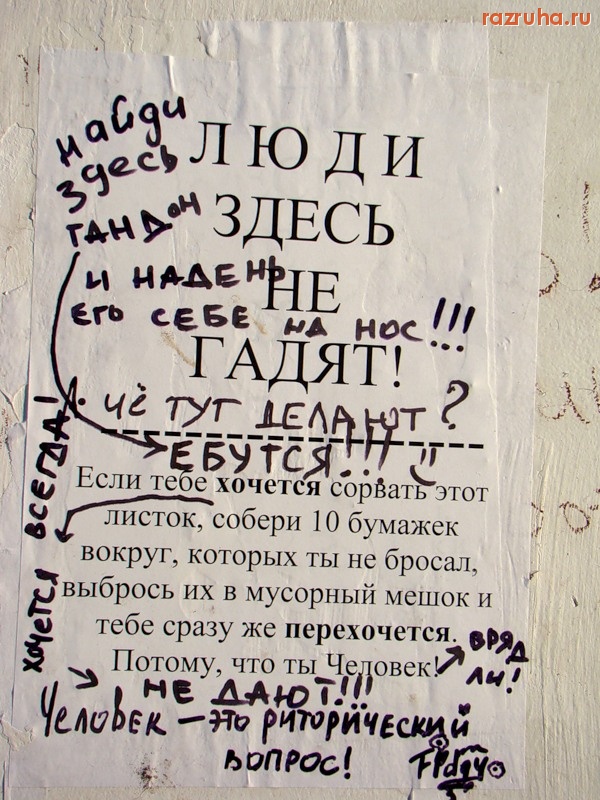 razruha.ru
найди
здесь
гандон
ЛЮДИ
ЗДЕСЬ
НЕ
ГАДЯТ!
и надень
его себе на нос!!!
А чё тут делают?
ЕБУТСЯ!!!
Если тебе хочется сорвать этот
листок, собери 10 бумажек
вокруг, которых ты не бросал,
выбрось их в мусорный мешок и
тебе сразу же перехочется.
Потому, что ты Человек!
вряд
ли!
хочется всегда!
НЕ ДАЮТ!!!
Человек — это риторический
вопрос!